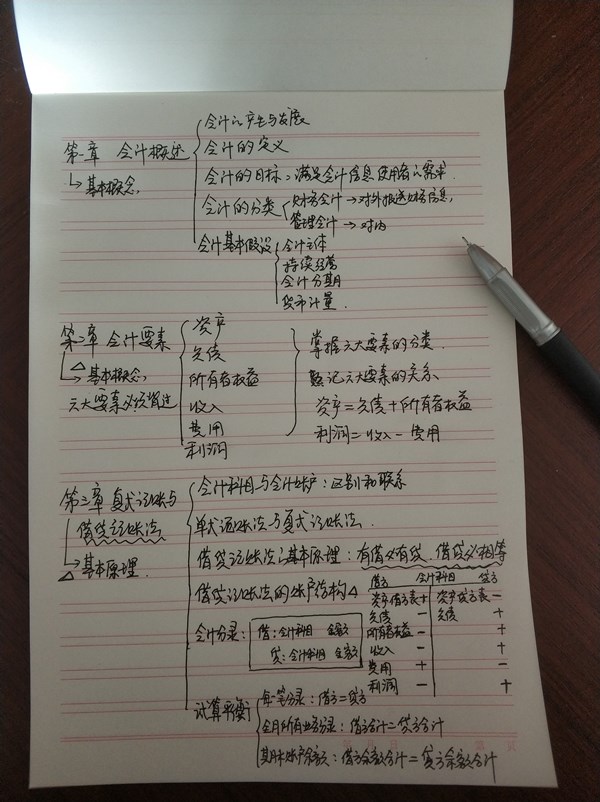 会计的产生与发展
第一章 会计概述
会计的定义
会计的目标：满足会计信息使用者的需求.
↳基本概念,
会计的分类
财务会计→对外报送财务信息,
管理会计→对内
会计基本假设
会计主体
持续经营
会计分期
货币计量.
第二章 会计要素
△
↳基本概念,
六大要素必须背过
资产
负债
所有者权益
收入
费用
利润
掌握六大要素的分类.
熟记六大要素的关系
资产=负债+所有者权益
利润=收入-费用
第三章 复式记账与
借贷记账法
△
↳基本原理.
会计科目与会计账户:区别和联系
单式记账法与复式记账法.
借贷记账法的基本原理:有借必有贷、借贷必相等
借贷记账法的账户结构△
借方 会计科目 贷方
资产借方表+ 资产贷方表-
负债 - 负债 +
所有者权益- +
收入 - +
费用 + -
利润 - +
会计分录:
借:会计科目 金额
贷:会计科目 金额
试算平衡
每一笔分录:借方=贷方
全月所有业务分录:借方合计=贷方合计
期末账户余额:借方余额合计=贷方余额合计